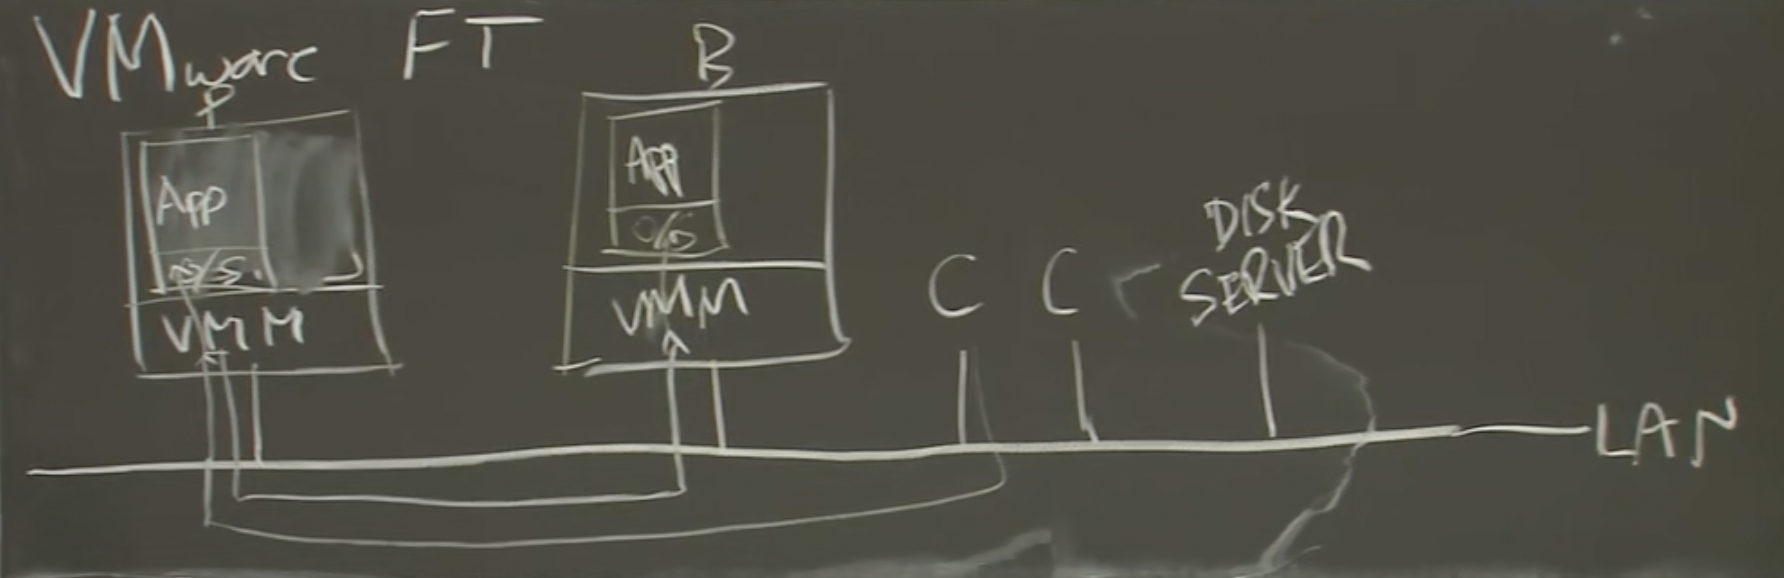 VMware FT
P
B
App
O/S.
VMM
App
O/S
VMM
C
C
DISK
SERVER
LAN